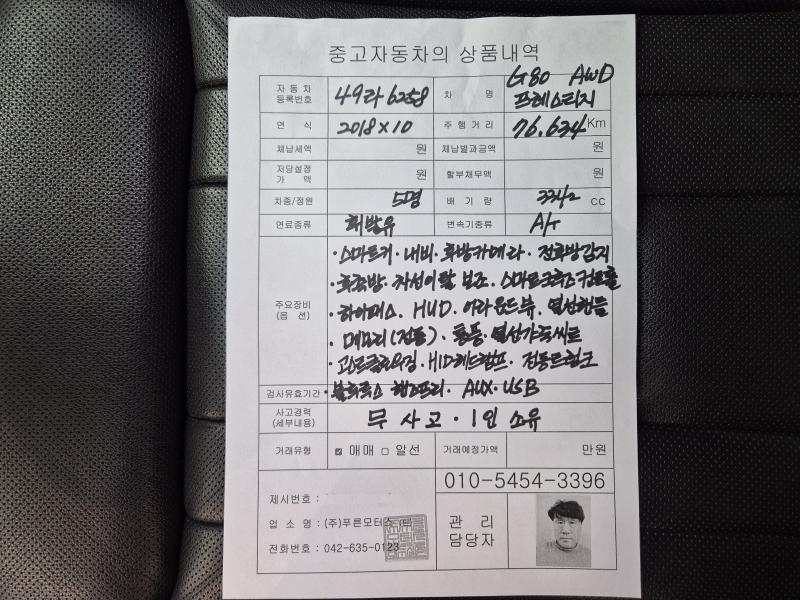 중고자동차의 상품내역
자동차 등록번호 49라 6258 차 명 G80 AWD 프레스티지
연 식 2018 x 10 주행거리 76,634 Km
체납세액 원 체납벌과금액 원
저당설정 가 액 원 할부채무액 원
차종/정원 5명 배 기 량 3342 cc
연료종류 휘발유 변속기종류 A/T
주요장비 (옵 션)
· 스마트키 · 내비 · 후방카메라 · 전후방감지
· 후측방 · 차선이탈 보조 · 스마트크루즈컨트롤
· 하이패스 · HUD · 어라운드뷰 · 열선핸들
· 메모리(전동) · 통풍 · 열선가죽씨트
· HID헤드램프 · 전동트렁크
검사유효기간 · 블루투스 핸즈프리 · AUX · USB
사고경력 (세부내용) 무 사고 · 1인 소유
거래유형 ☑ 매매 □ 알선 거래예정가액 만원
010-5454-3396
제시번호 :
업 소 명 : (주)푸른모터스
전화번호 : 042-635-0123
관 리
담당자